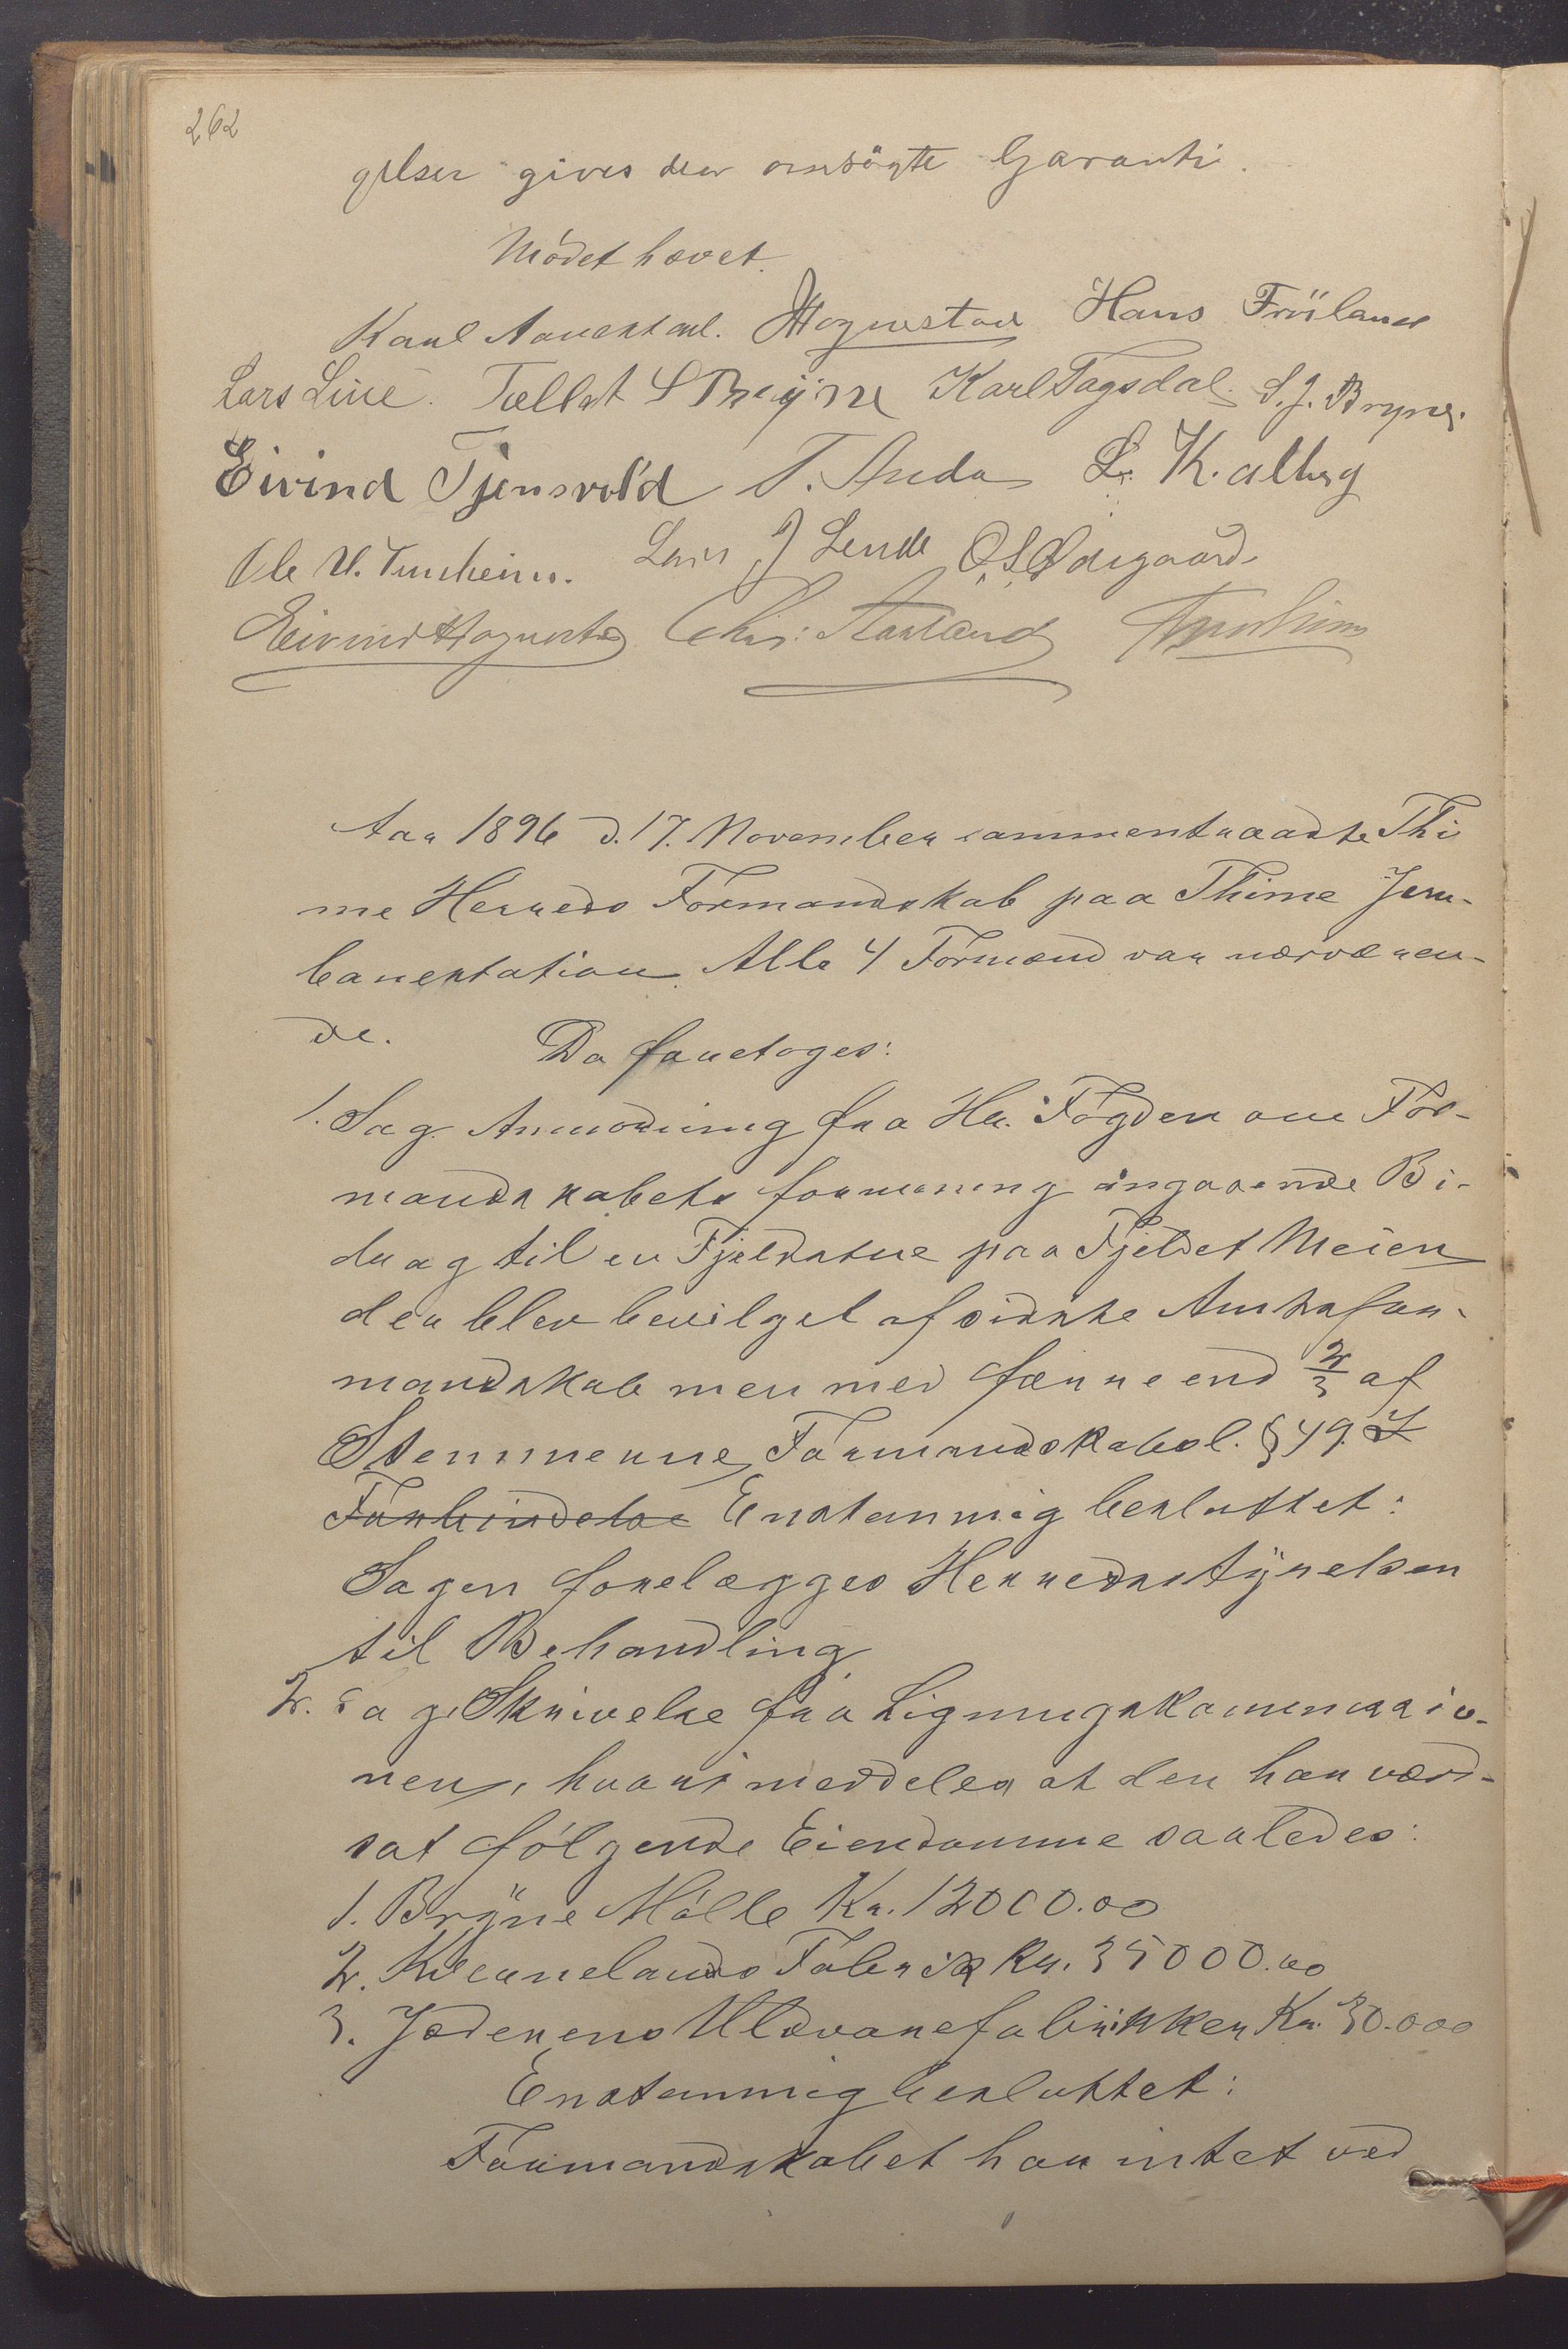 262
gelser gives den ansögte Garanti.
Mödet hævet.
Karl Hognestad Hans Fröiland
Lars Line. Tollef S Bryne Karl Tagsdal. S. J. Bryne.
Eivind Tjensvold T. Anda L. Kalberg
Ole U. Tunheim. Lars J Lende O. S. Ødegaard
Eivind Hognestad Chr: Aarland
Aar 1896 d. 17. November sammentraadte Thi
me Herreds Formandskab paa Thime Jern-
banestation. Alle 4 Formænd var nærværen-
de. Da foretoges:
1. Sag. Anmodning fra Hr. Fogden om For-
mandskabets formening angaaende Bi-
drag til en Fjeldstue paa Fjeldet Meien
der blev bevilget af sidste Amtsfor-
mandskab men med færre end 2/3 af
Stemmerne, Formandskabsl. § 49. I
Forbindelse Enstemmig besluttet:
Sagen forelægges Herredsstÿrelsen
til Behandling
2. Sag. Skrivelse fra Ligningskommissio-
nen, hvori meddeles at den har værd-
sat fölgende Eiendomme saaledes:
1. Brÿne Mölle Kr. 12000.00
2. Kvernelands Fabrik Kr. 35000.00
3. Jæderens Uldvarefabrikker Kr. 30.000
Enstemmig besluttet:
Formandskabet har intet ved